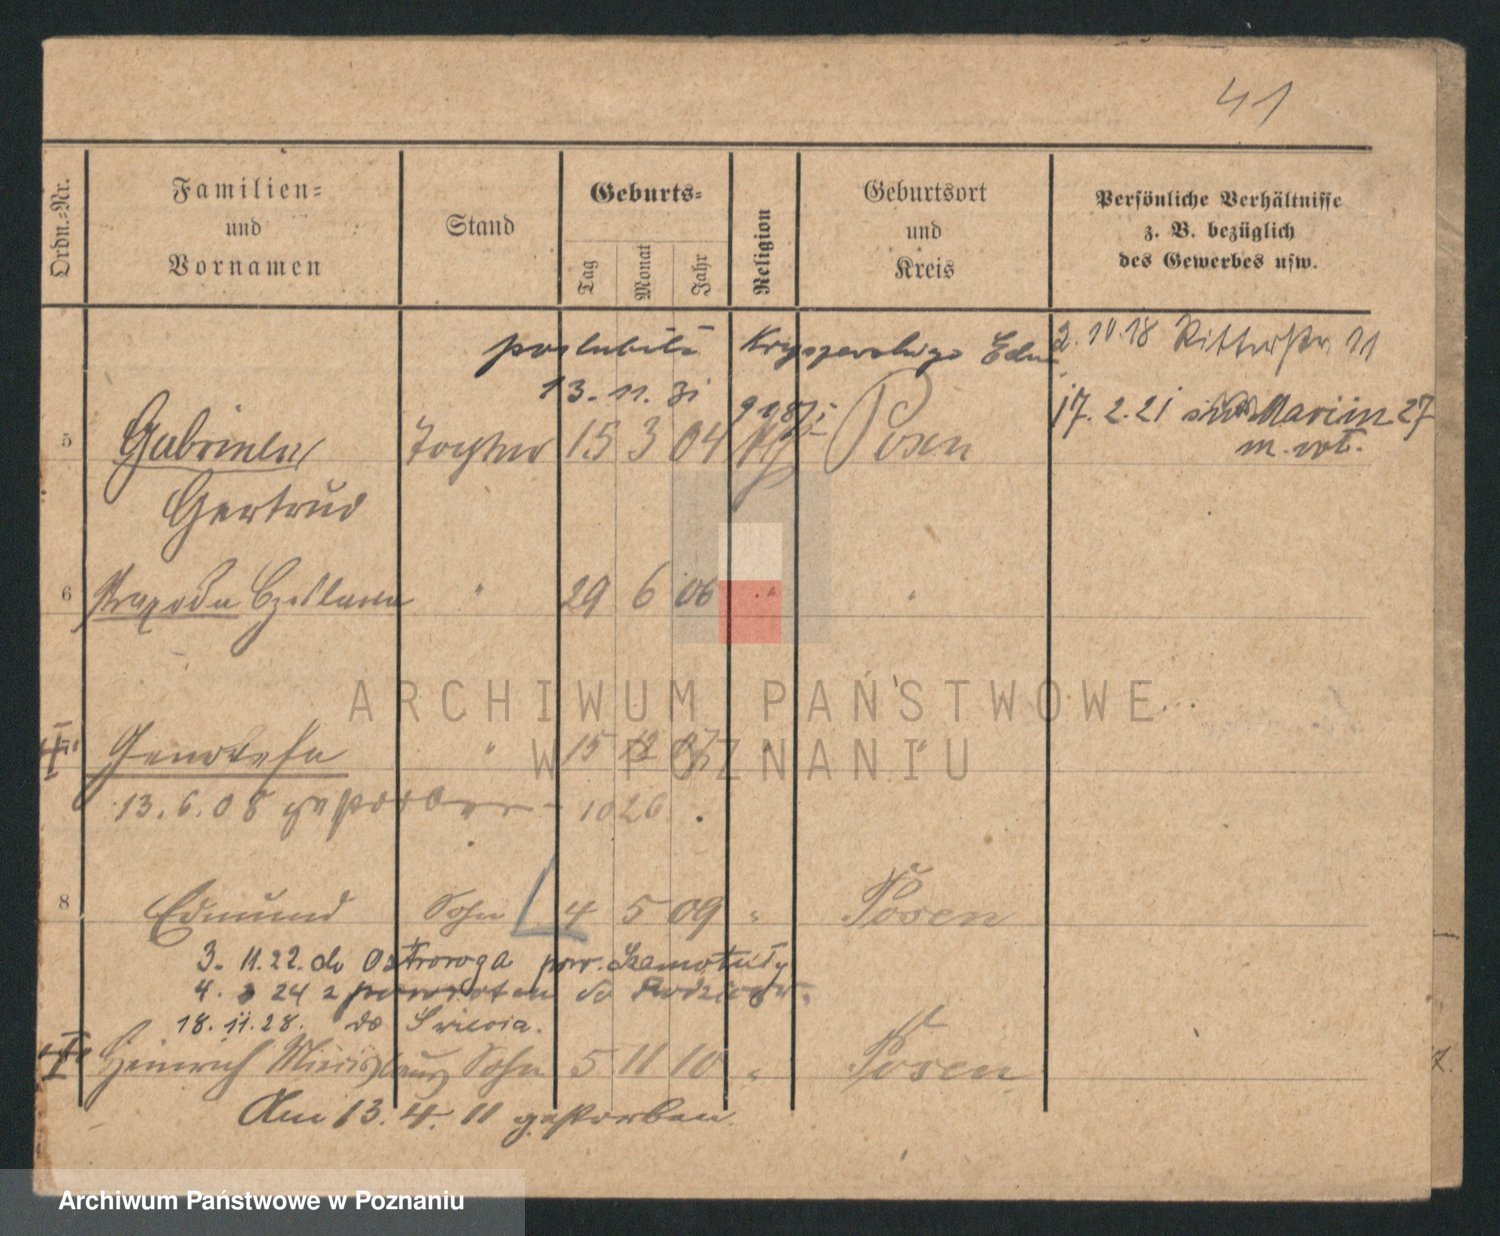 41
Ordn.=Nr.
Familien=
und
Vornamen
Stand
Geburts=
Tag
Monat
Jahr
Religion
Geburtsort
und
Kreis
Persönliche Verhältnisse
z. B. bezüglich
des Gewerbes usw.
poslubiła Edm
2.10.18 Ritterstr. 11
13. 11. 31
17. 2. 21 Marcin 27
m. rot.
5 Gabriela Tochter 15 3 04 Posen
Gertrud
6 Praxeda " 29 6 06 " "
Genovefa " 15 12 07 " "
13. 6. 08 gestorben 1020.
8 Edmund Sohn 4 5 09 " Posen
3. 11. 22. do Ostroroga pow. Szamotuły
4. 24 z powrotem do
18. 11. 28. do
Heinrich Sohn 5 11 10 " Posen
Am 13. 4. 11 gestorben.
ARCHIWUM PAŃSTWOWE
W POZNANIU
Archiwum Państwowe w Poznaniu